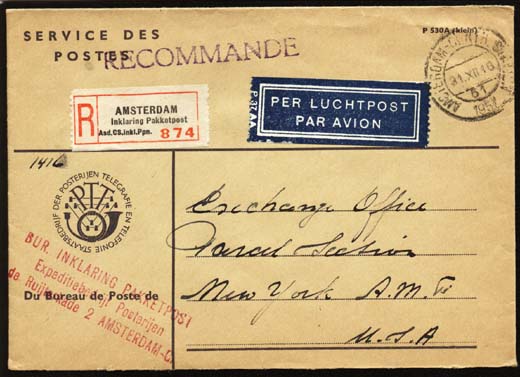 SERVICE DES
POSTES
RECOMMANDE
P 530A (klein)
AMSTERDAM-CENTR. STATION
31.XII.16
51
1951
R
AMSTERDAM
Inklaring Pakketpost
Asd.CS.inkl.Ppn.
874
P 37
PER LUCHTPOST
PAR AVION
1416
STAATSBEDRIJF DER POSTERIJEN TELEGRAFIE EN TELEFONIE
PTT
BUR. INKLARING PAKKETPOST
Expeditiebedrijf Posterijen
de Ruijterkade 2 AMSTERDAM-C.
Du Bureau de Poste de
Exchange Office
Parcel Section
New York
U.S.A